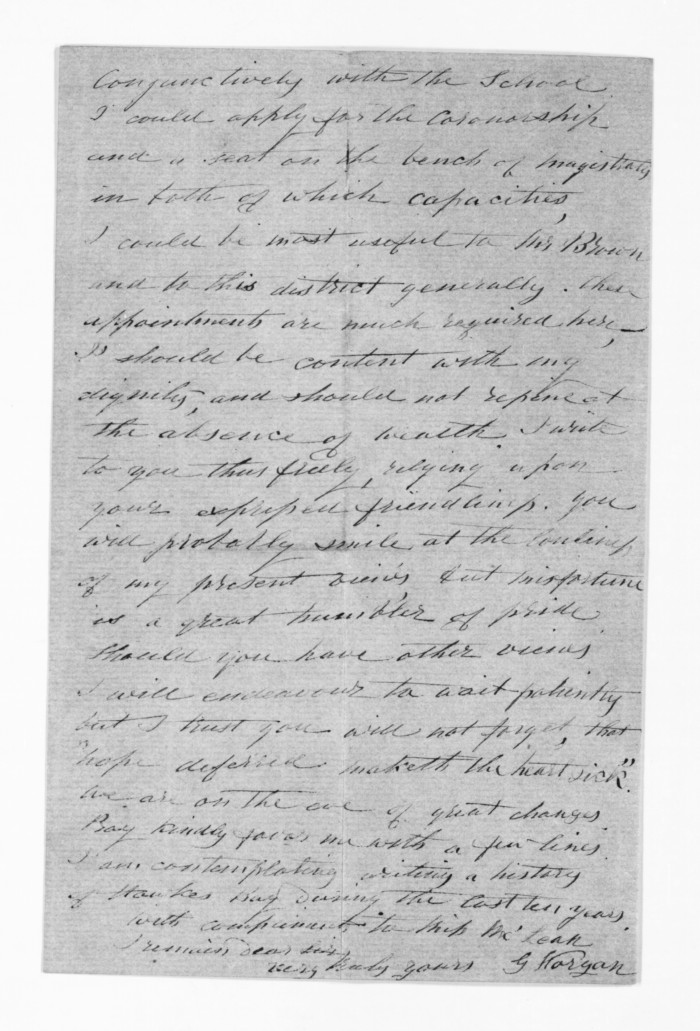 Conjunctively with the School.
I could apply for the Coronorship
and a seat on the bench of magistrates
in both of which capacities,
I could be most useful to Mr Brown
and to this district generally. These
appointments are much required here,
I should be content with my
dignity, and should not repine at
the absence of wealth. I write
to you thus freely, relying upon
your expressed friendliness. You
will probably smile at the
of my present views, but misfortune
is a great humbler of pride
Should you have other views
I will endeavour to wait patiently
but I trust you will not forget, that
"hope deferred maketh the heart sick".
We are on the eve of great changes
Pray kindly favor me with a few lines.
I am contemplating writing a history
of Hawkes Bay during the last ten years.
With compliments to Miss McLean
I remain dear sir
very truly yours G Worgan